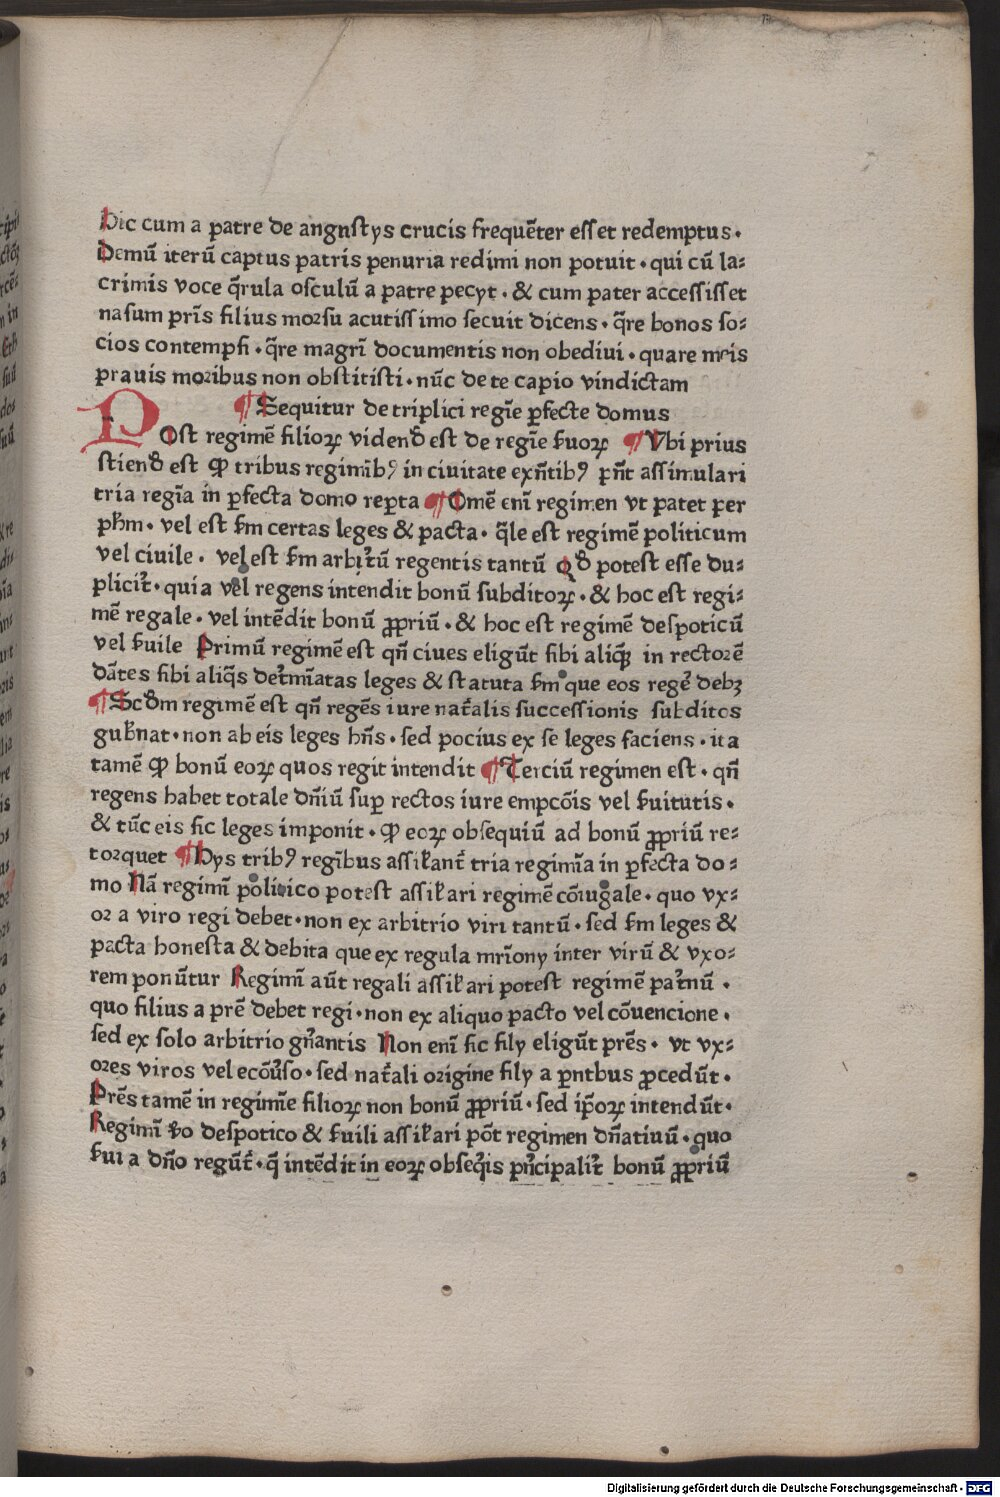 Hic cum a patre de angnstys crucis frequēter esset redemptus.
Demū iterū captus patris penuria redimi non potuit . qui cū la⸗
crimis voce q̄rula osculū a patre pecyt . & cum pater accessisset
nasum pr̄is filius morsu acutissimo secuit dicens . q̄re bonos so⸗
cios contempsi . q̄re magr̄i documentis non obediui . quare meis
prauis moribus non obstitisti . nūc de te capio vindictam
¶ Sequitur de triplici regīe ꝑfecte domus
POst regimē filioꝝ videnđ est de regīe ẜuoꝝ ¶ Vbi prius
stienđ est ꝙ tribus regimīb⁹ in ciuitate exn̄tib⁹ pn̄t assimulari
tria regīa in ꝑfecta domo reꝑta ¶ Omē enī regimen vt patet per
pħm . vel est ẜm certas leges & pacta . q̄le est regimē politicum
vel ciuile . vel est ẜm arbitrū regentis tantū Qđ potest esse du⸗
plicit̄ . quia vel regens intendit bonū subditoꝝ . & hoc est regi⸗
mē regale . vel intēdit bonū ꝓpriū . & hoc est regimē despoticū
vel ẜuile Primū regimē est qn̄ ciues eligūt sibi aliqē in rectorē
dātes sibi aliq̄s det̄mīatas leges & statuta ẜm que eos regē debꝫ
¶ Scđm regimē est qn̄ regēs iure nat̄alis successionis subditos
gub̄nat . non ab eis leges hn̄s . sed pocius ex se leges faciens . ita
tamē ꝙ bonū eoꝝ quos regit intendit ¶ Terciū regimen est . qn̄
regens habet totale dn̄iū suꝑ rectos iure empcōis vel ẜuitutis .
& tūc eis sic leges imponit . ꝙ eoꝝ obsequiū ad bonū ꝓpriū re⸗
torquet ¶ Hys trib⁹ regīmbus assil̄ant̄ tria regimīa in ꝑfecta do⸗
mo Nā regimī politico potest assil̄ari regimē cōiugale . quo vx⸗
or a viro regi debet . non ex arbitrio viri tantū . sed ẜm leges &
pacta honesta & debita que ex regula mr̄iony inter virū & vxo⸗
rem ponūtur Regimī aūt regali assil̄ari potest regimē pat̄nū .
quo filius a prē debet regi . non ex aliquo pacto vel cōuencione .
sed ex solo arbitrio gn̄antis Non enī sic fily eligūt prēs . vt vx⸗
ores viros vel ecōūso . sed nat̄ali origine fily a pn̄tbus ꝓcedūt .
Prēs tamē in regimīe filioꝝ non bonū ꝓpriū . sed ip̄oꝝ intendūt .
Regimī ẜo despotico & ẜuili assil̄ari pōt regimen dn̄atiuū . quo
ẜui a dn̄o regūt̄ . q̄ intēdit in eoꝝ obseq̄is pn̄cipalit̄ bonū ꝓpriū
Digitalisierung gefördert durch die Deutsche Forschungsgemeinschaft - DFG